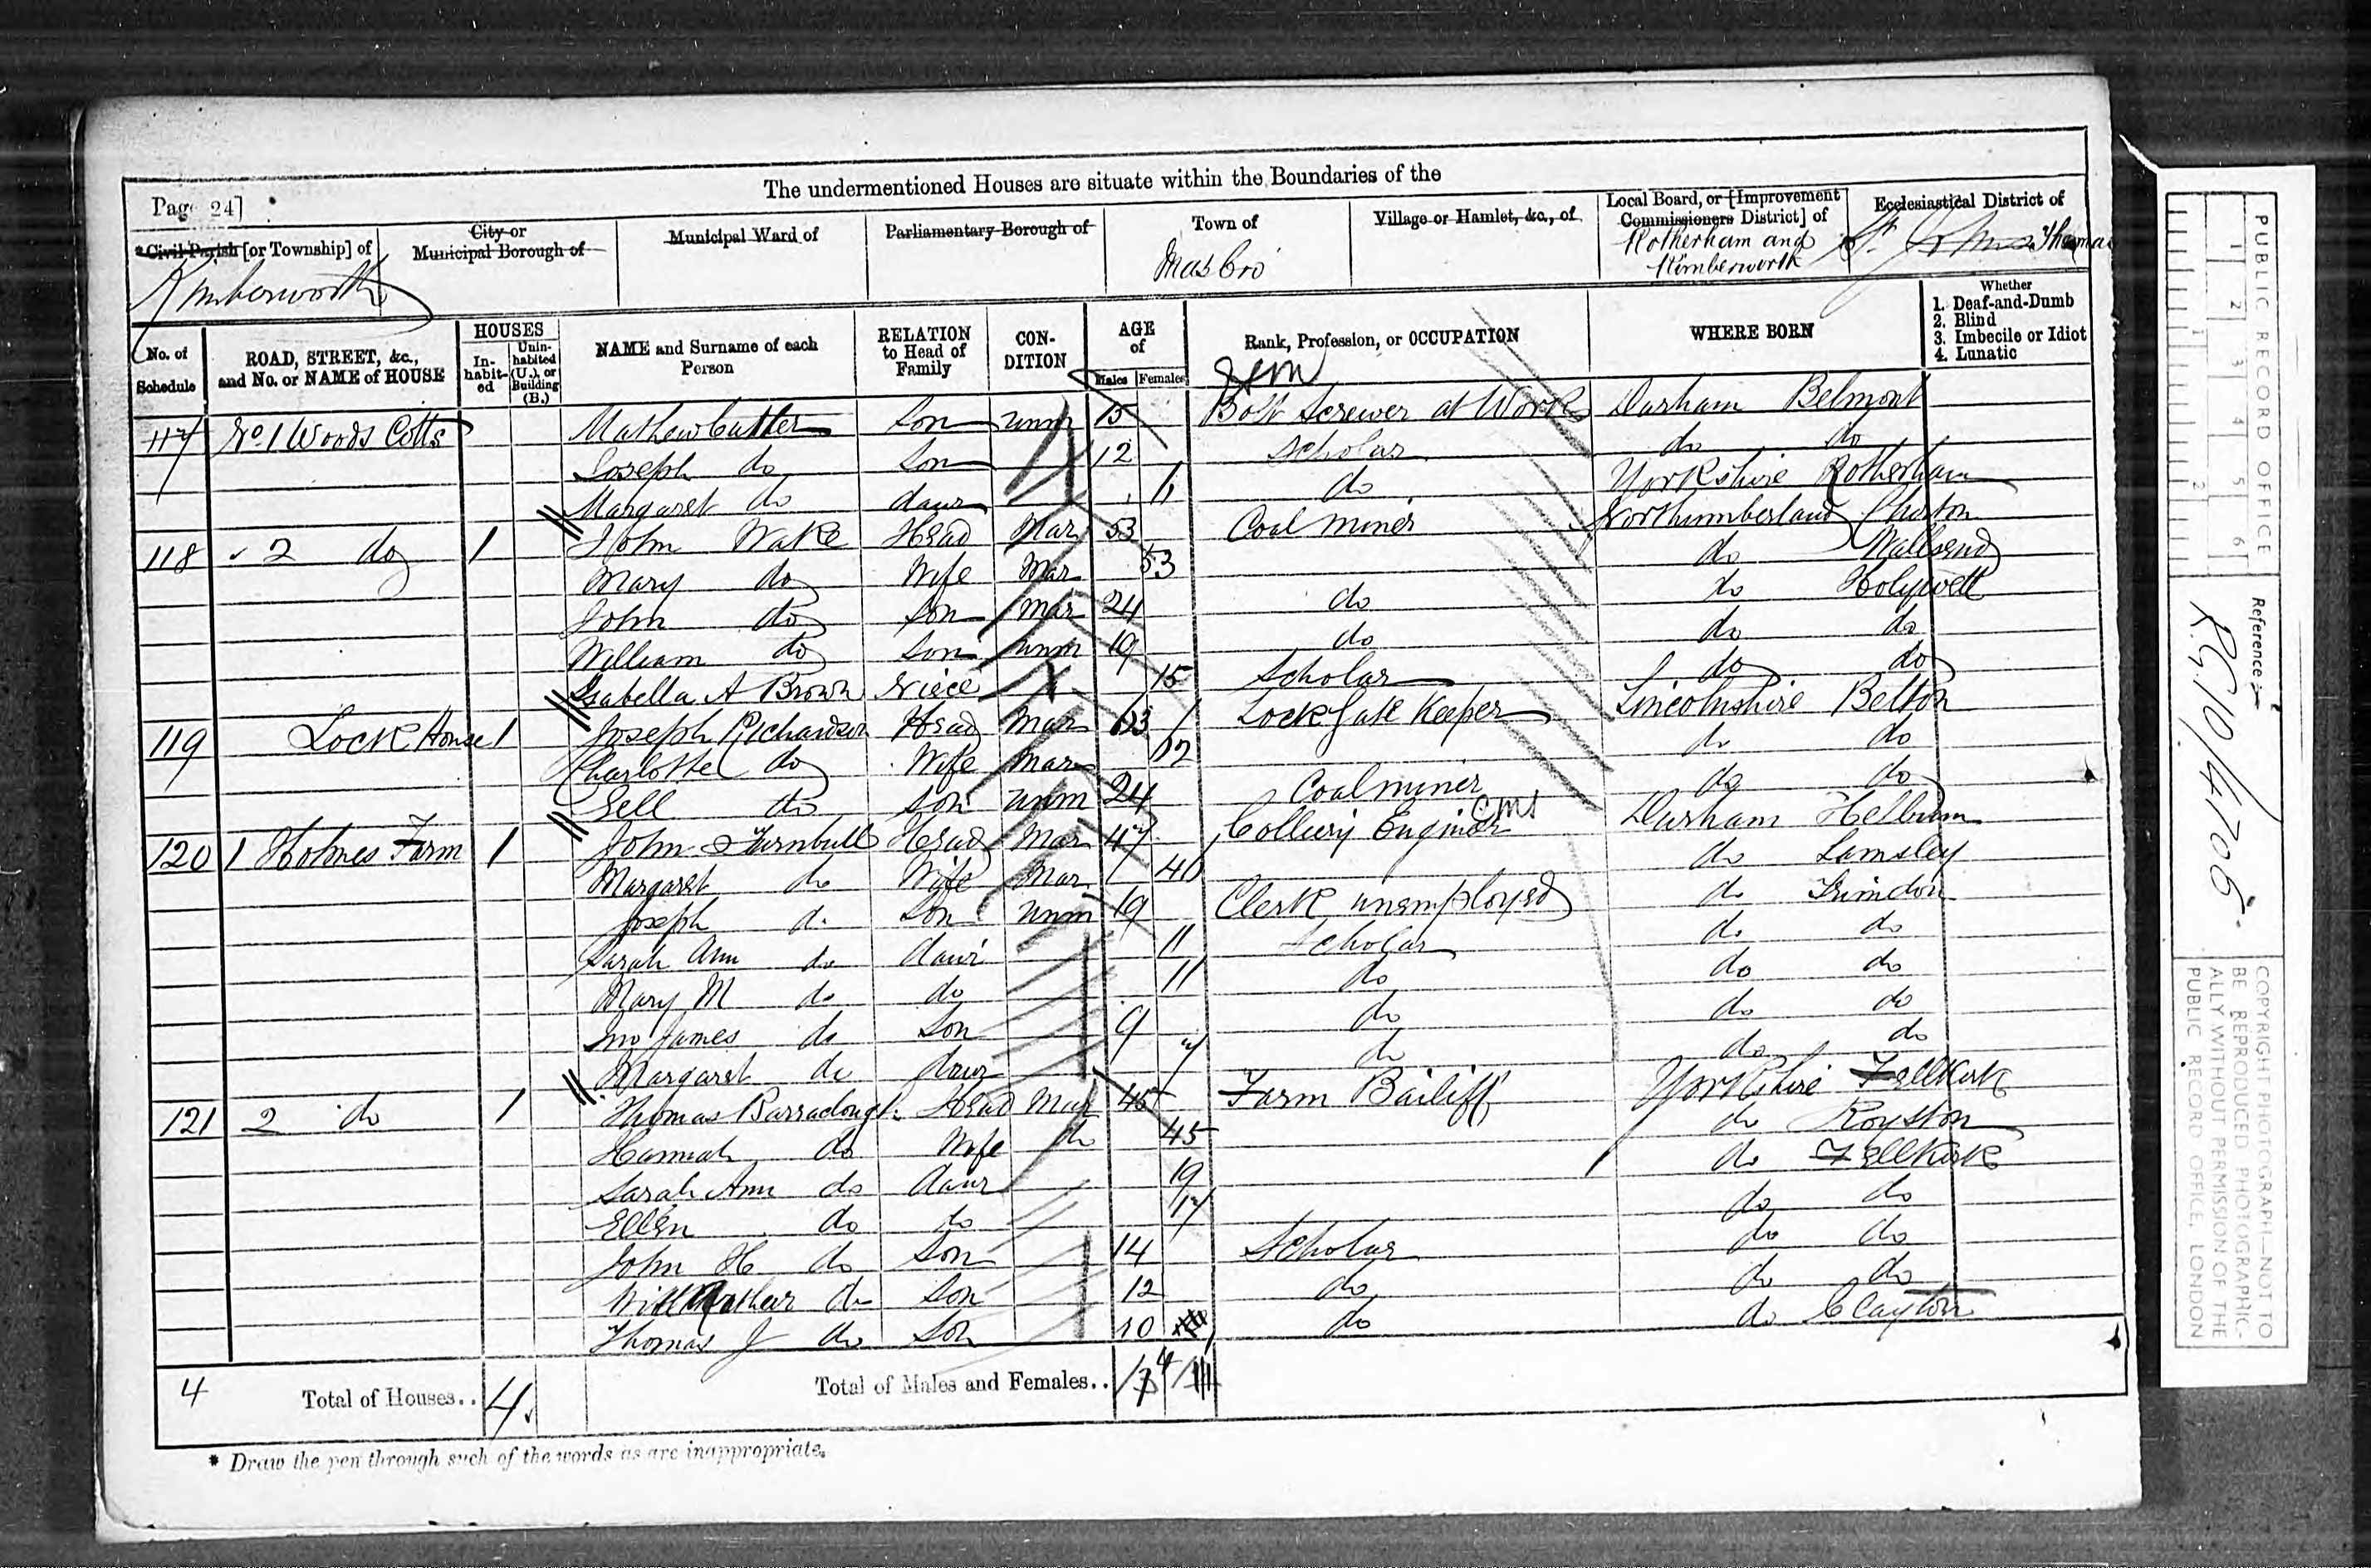 The undermentioned Houses are situate within the Boundaries of the
Page 24]
*Civil Parish [or Township] of
City or Municipal Borough of
Municipal Ward of
Parliamentary Borough of
Town of
Village or Hamlet, &c., of
Local Board, or [Improvement Commissioners District] of
Ecclesiastical District of
Kimberworth
Masbro
Rotherham and Kimberworth
St. Johns Thomas
No. of Schedule
ROAD, STREET, &c., and No. or NAME of HOUSE
HOUSES
In-habit-ed
Unin-habited (U.), or Building (B.)
NAME and Surname of each Person
RELATION to Head of Family
CON-DITION
AGE of
Males
Females
Rank, Profession, or OCCUPATION
WHERE BORN
Whether
1. Deaf-and-Dumb
2. Blind
3. Imbecile or Idiot
4. Lunatic
117 No 1 Woods Cotts Mathew Cutter Son unm 15 Bolt Screwer at Works Durham Belmont
Joseph do Son 12 Scholar do do
Margaret do daur do Yorkshire Rotherham
118 2 do 1 John Wake Head Mar 53 Coal miner Northumberland Chirton
Mary do Wife Mar 53 do Wallsend
John do Son Mar 24 do do Holywell
William do Son unm 19 do do do
Isabella A Brown Niece 15 Scholar do do
119 Lock House 1 Joseph Richardson Head Mar 63 Lock gate Keeper Lincolnshire Belton
Charlotte do Wife Mar do do
Gell do Son unm 24 Coal miner do do
120 1 Holmes Farm 1 John Turnbull Head Mar 47 Colliery Engineer Durham Helburn
Margaret do Wife Mar 40 do Lamsley
Joseph do Son unm 19 Clerk unemployed do Trimdon
Sarah Ann do daur 11 Scholar do do
Mary M do do 11 do do do
Jno James do Son 9 do do do
Margaret do daur 7 do do do
121 2 do 1 Thomas Barraclough Head Mar 45 Farm Bailiff Yorkshire Fellkirk
Hannah do Wife do 45 do Royston
Sarah Ann do daur 19 do Fellkirk
Ellen do do 17 do do
John H do Son 14 Scholar do do
Will Arthur do Son 12 do do do
Thomas J do Son 10 do do Clayton
4 Total of Houses.. 4 Total of Males and Females..
* Draw the pen through such of the words as are inappropriate.
PUBLIC RECORD OFFICE
1 2 3 4 5 6
1 2
Reference :-
R.G. 10/4706
COPYRIGHT PHOTOGRAPH—NOT TO
BE REPRODUCED PHOTOGRAPHIC-
ALLY WITHOUT PERMISSION OF THE
PUBLIC RECORD OFFICE, LONDON